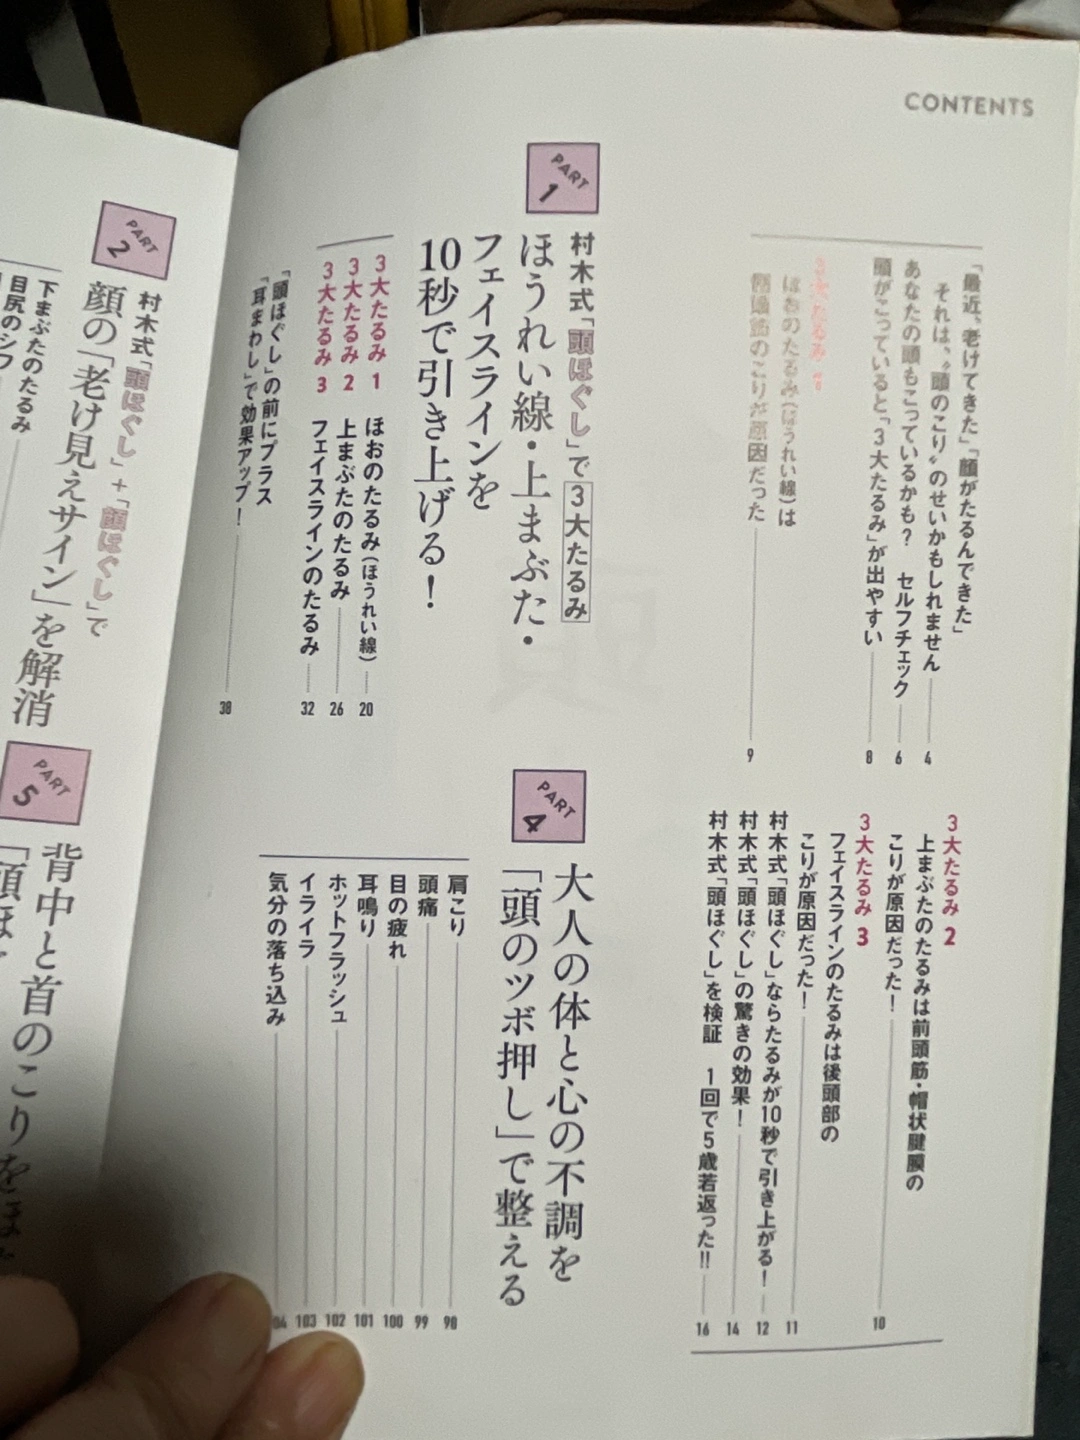 CONTENTS
「最近、老けてきた」「顔がたるんできた」
それは、“頭のこり”のせいかもしれません 4
あなたの頭もこっているかも? セルフチェック 6
頭がこっていると「3大たるみ」が出やすい 8
3大たるみ 1
ほおのたるみ(ほうれい線)は
側頭筋のこりが原因だった 9
3大たるみ 2
上まぶたのたるみは前頭筋・帽状腱膜の
こりが原因だった! 10
3大たるみ 3
フェイスラインのたるみは後頭部の
こりが原因だった! 11
村木式「頭ほぐし」ならたるみが10秒で引き上がる! 12
村木式「頭ほぐし」の驚きの効果! 14
村木式「頭ほぐし」を検証 1回で5歳若返った!! 16
PART 1
村木式「頭ほぐし」で3大たるみ
ほうれい線・上まぶた・
フェイスラインを
10秒で引き上げる!
3大たるみ 1 ほおのたるみ(ほうれい線) 20
3大たるみ 2 上まぶたのたるみ 26
3大たるみ 3 フェイスラインのたるみ 32
「頭ほぐし」の前にプラス
「耳まわし」で効果アップ! 38
PART 4
大人の体と心の不調を
「頭のツボ押し」で整える
肩こり 98
頭痛 99
目の疲れ 100
耳鳴り 101
ホットフラッシュ 102
イライラ 103
気分の落ち込み
PART 2
村木式「頭ほぐし」+「顔ほぐし」で
顔の「老け見えサイン」を解消
下まぶたのたるみ
目尻のシワ
PART 5
背中と首のこりをほ